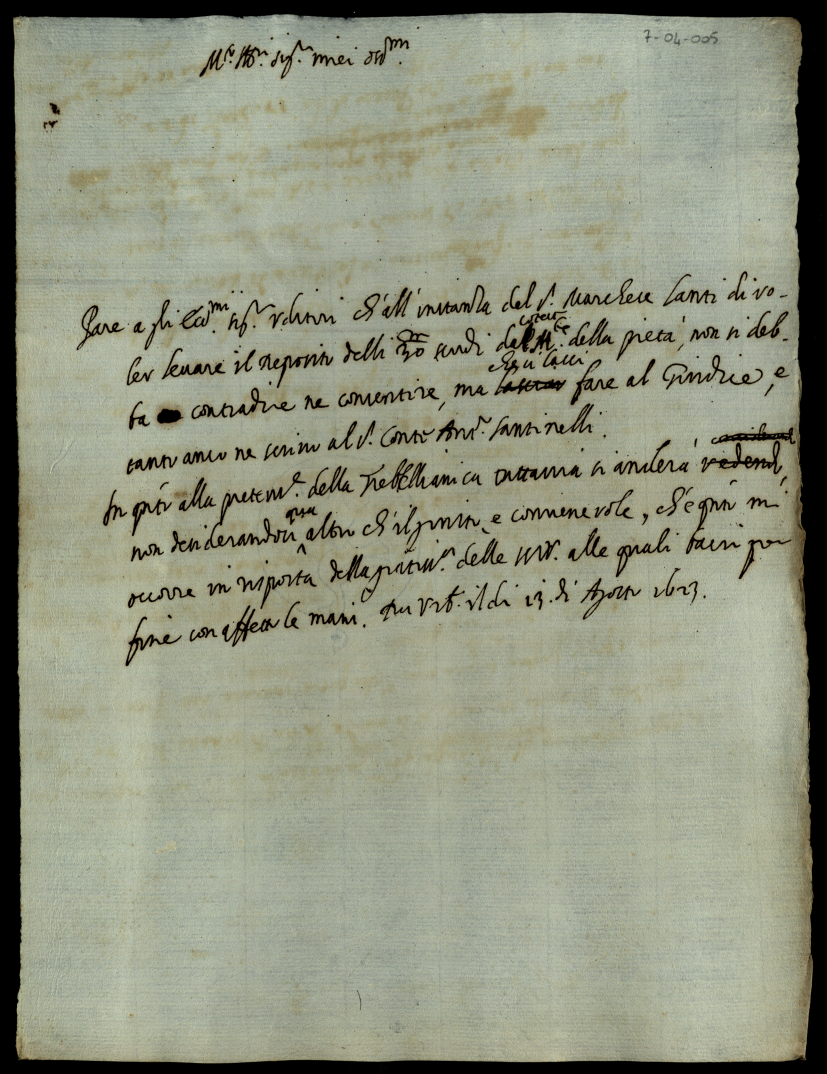 7-04-005
Sig.ri miei oss.mi
Pare a gli Ecc.mi sig.ri Uditori ch'all'instanza del S.r Marchese Santi di vo-
ler levare il deposito delli 30 scudi dal M.te della pietà, non si deb-
ba contradire ne consentire, ma ch'si lassi lasciar fare al Giudice, e
tanto anco ne scrivo al S.r Conte Ant.o Santinelli.
In q.nto alla pretens.e della Trebellianica tuttavia si anderà vedendo,
non desiderandosi qua altro ch'il giusto, e convenevole, ch'è q.nto mi
occorre in risposta della delle SS.VV. alle quali bacio per
fine con affetto le mani. Urb.o il di 13. di Agosto 1623.